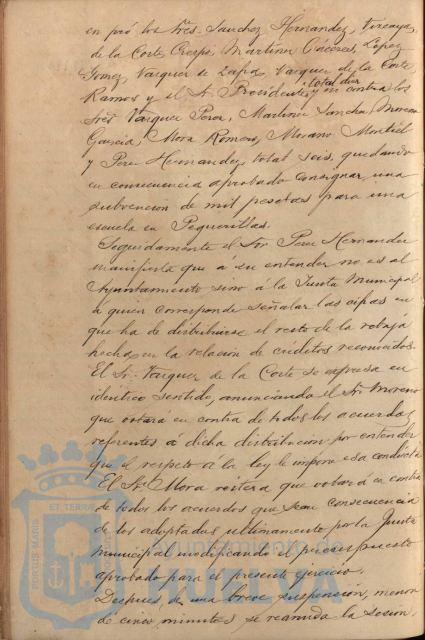 en pró los Sres. Sanchez Hernandez, Vizcaya,
de la Corte, Crespo, Martinez Cáceres, Lopez
Gomez, Vazquez de Zafra, Vazquez de la Corte
Ramos y el Sr. Presidente, total diez
y en contra los
Sres. Vazquez Perez, Martinez Sanchez, Moreno
Garcia, Mora Romero, Morano Montiel
y Perez Hernandez, total seis, quedando
en consecuencia aprobado consignar una
subvencion de mil pesetas para una
escuela en Peguerillas.
Seguidamente el Sr. Perez Hernandez
manifiesta que á su entender no es al
Ayuntamiento sino á la Junta Municipal
á quien corresponde señalar las cifras en
que ha de distribuirse el resto de la rebaja
hecha en la relación de créditos reconocidos.
El Sr. Vazquez de la Corte se expresa en
idéntico sentido, anunciando el Sr. Moreno
que votará en contra de todos los acuerdos
referentes á dicha distribucion por entender
que el respeto á la ley le impone esa conducta
El Sr. Mora reitera que votará en contra
de todos los acuerdos que sean consecuencia
de los adoptados ultimamente por la Junta
municipal modificando el presupuesto
aprobado para el presente ejercicio.
Despues de una breve suspension, menor
de cinco minutos se reanuda la sesion.
PORTUS MARIS
ET TERRAE
Ayuntamiento de
HUELVA